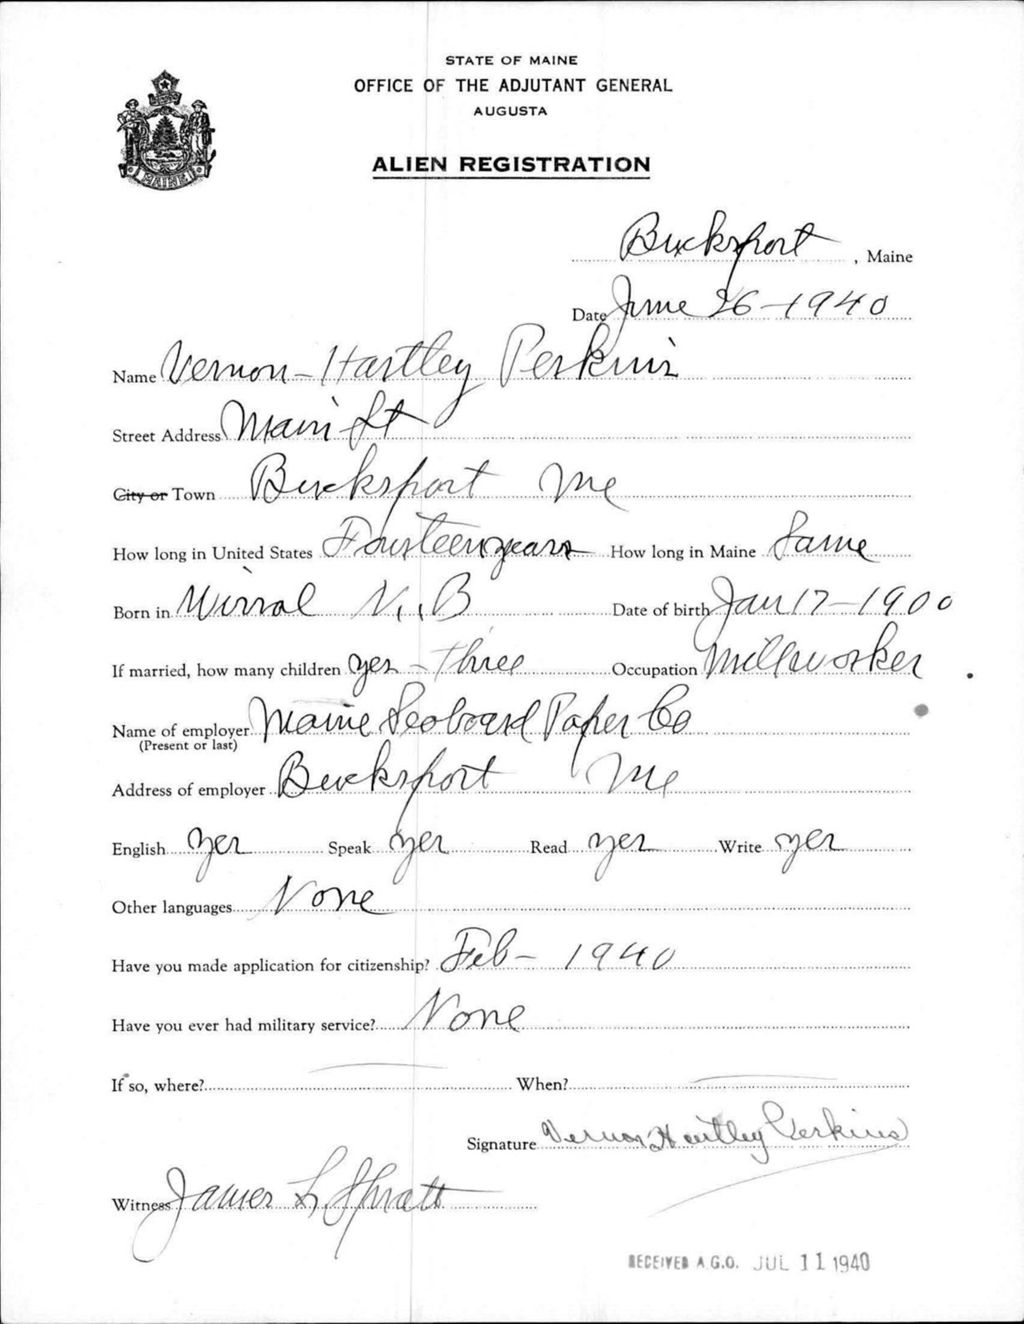 STATE OF MAINE
OFFICE OF THE ADJUTANT GENERAL
AUGUSTA
ALIEN REGISTRATION
MAINE
Bucksport, Maine
Date June 26-1940
Name Vernon-Hartley Perkins
Street Address Main St
City or Town Bucksport Me
How long in United States Fourteen years How long in Maine Same
Born in Wirral N.B Date of birth Jan 17-1900
If married, how many children yes - Three Occupation Millworker
Name of employer Maine Seaboard Paper Co
(Present or last)
Address of employer Bucksport Me
English yes Speak yes Read yes Write yes
Other languages None
Have you made application for citizenship? Feb - 1940
Have you ever had military service? None
If so, where? When?
Signature Vernon Hartley Perkins
Witness James L Spratt
RECEIVED A.G.O. JUL 11 1940